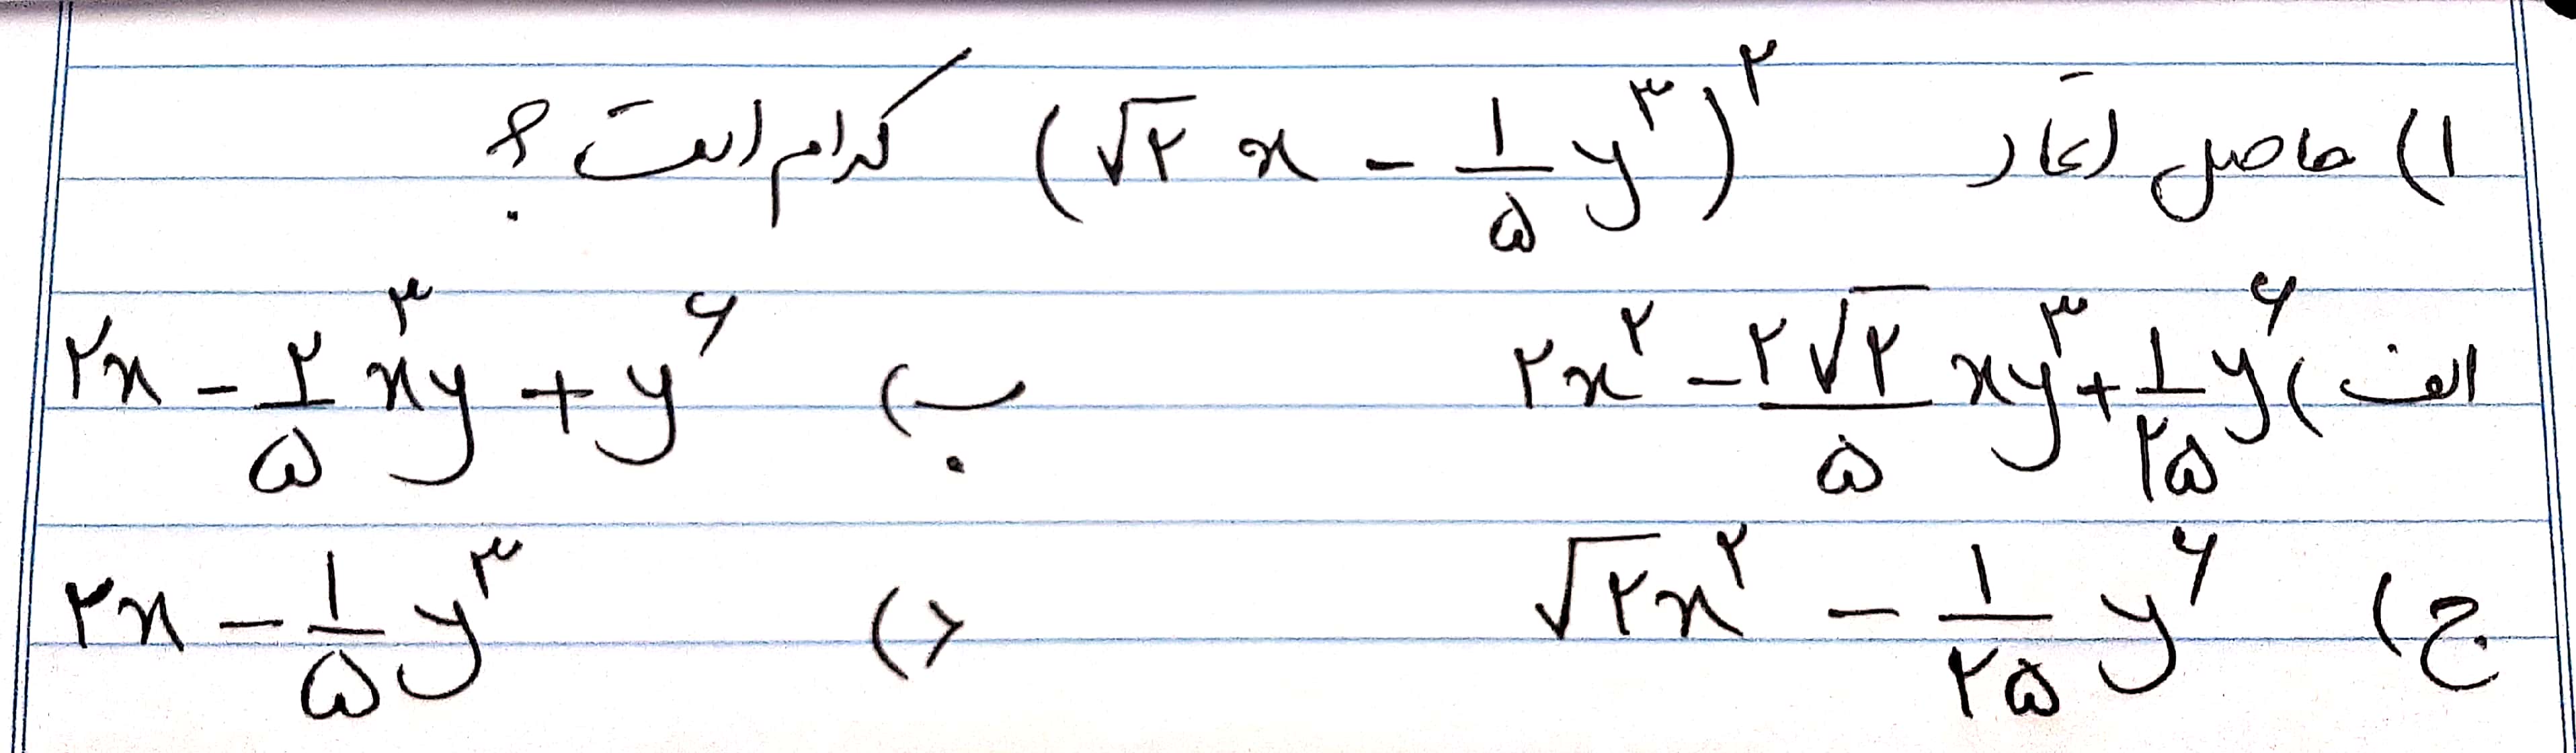 ۱) حاصل اتحاد (√۲ x - ۱/۵ y^۳)^۲ کدام است؟
الف) ۲x^۲ - ۲√۲/۵ xy^۳ + ۱/۲۵ y^۶ ب) ۲x - ۲/۵ x^۳y + y^۶
ج) √۲x^۲ - ۱/۲۵ y^۶ د) ۲x - ۱/۵ y^۳